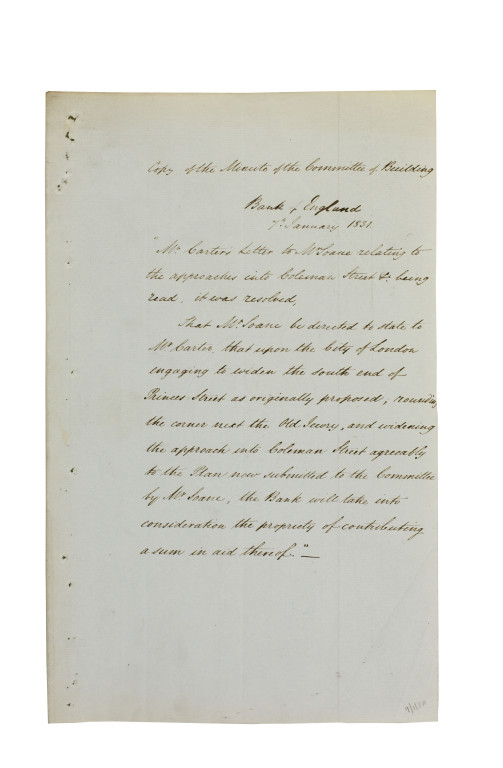 Copy of the Minute of the Committee of Building
Bank of England
7th January 1831.
Mr. Carter's Letter to Mr Soane relating to
the approaches into Coleman Street &c. being
read, it was resolved,
That Mr. Soane be directed to state to
Mr. Carter, that upon the City of London
engaging to widen the south end of
Princes Street as originally proposed, rounding
the corner next the Old Jewry, and widening
the approach into Coleman Street agreeably
to the Plan now submitted to the Committee
by Mr Soane, the Bank will take into
consideration the propriety of contributing
a sum in aid thereof." —